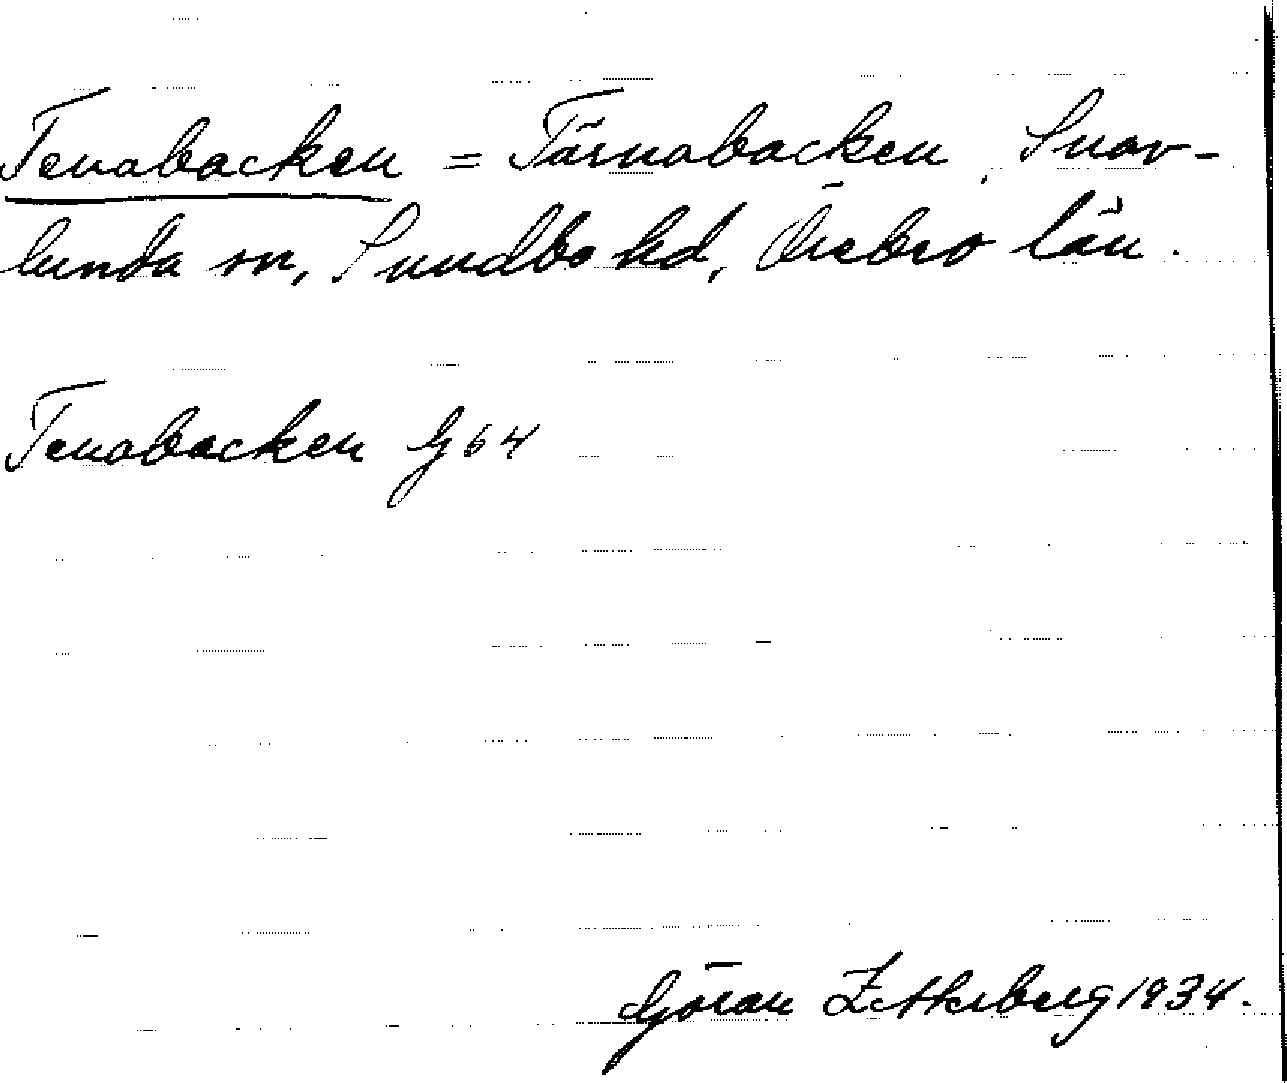 Tenabacken = Tärnabacken, Snav-
lunda sn, Sundbo hd, Örebro län.
Tenabacken G 64
Göran Zetterberg 1934.